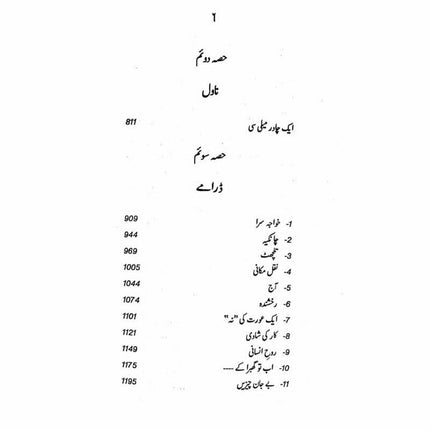 ۶
حصہ دوئم
ناول
ایک چادر میلی سی 811
حصہ سوئم
ڈرامے
1- خواجہ سرا 909
2- چانکیہ 944
3- تلچھٹ 969
4- نقل مکانی 1005
5- آج 1044
6- رخشندہ 1074
7- ایک عورت کی "نہ" 1101
8- کار کی شادی 1121
9- روحِ انسانی 1149
10- اب تو گھبرا کے ---- 1175
11- بے جان چیزیں 1195